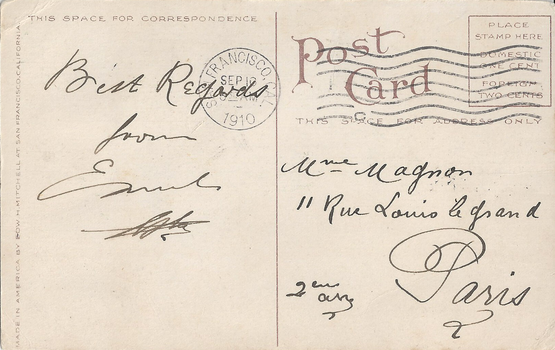 THIS SPACE FOR CORRESPONDENCE
Best Regards
from
MADE IN AMERICA BY EDW. H. MITCHELL AT SAN FRANCISCO, CALIFORNIA
SAN FRANCISCO, CAL.
SEP 12
1910
Post
Card
PLACE
STAMP HERE
DOMESTIC
ONE CENT
FOREIGN
TWO CENTS
THIS SPACE FOR ADDRESS ONLY
Mme Magnon
11 Rue Louis le grand
Paris
2em arr